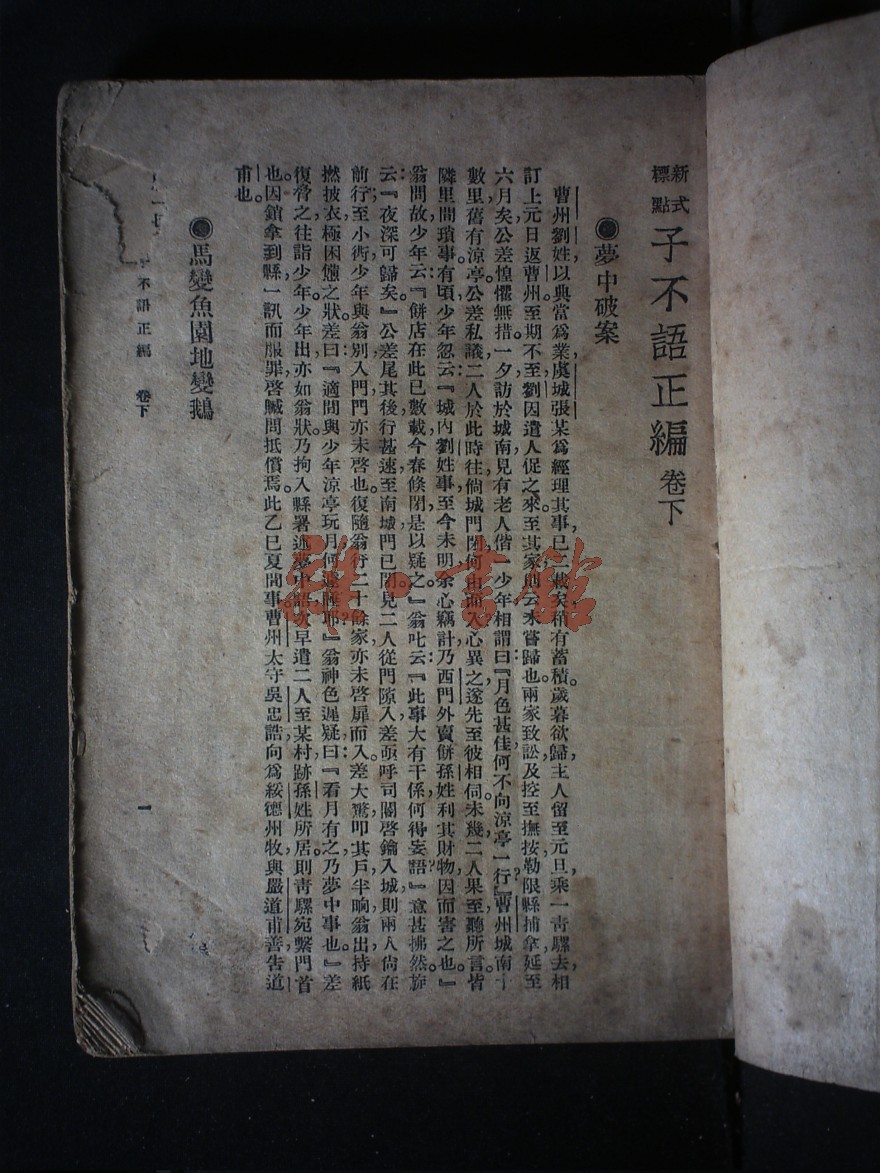 新式標點 子不語正編 卷下
●夢中破案
曹州劉姓以典當爲業，虞城張某爲經理其事已二載矣，稍有蓄積。歲暮欲歸，主人留至元旦，乘一青騾去，相
訂上元日返曹州，至期不至，劉因遣人促之。來至其家，則云未嘗歸也。兩家致訟，及控至撫按，勒限縣捕拿，延至
六月矣，公差惶懼無措。一夕訪於城南，見有老人偕一少年相謂曰：『月色甚佳，何不向涼亭一行？』曹州城南十
數里舊有涼亭，公差私議，二人於此時往，倘城門閉，何由而入，心異之，遂先至彼相伺。未幾，二人果至，聽所言皆
隣里間瑣事。有頃，少年忽云：『城內劉姓事，至今未明，余心竊計，乃西門外賣餅孫姓利其財物，因而害之也。』
翁問故，少年云：『餅店在此已數載，今春倏閉，是以疑之。』翁叱云：『此事大有干係，何得妄語？』意甚拂然。旋
云：『夜深可歸矣。』公差尾其後，行甚速，至南城門已閉，見二人從門隙入，差亟呼司閽啓鑰入城，則兩人尙在
前行；至小衖，少年與翁別，入門，門亦未啓也。復隨翁行二十餘家，亦未啓扉而入。差大驚，叩其戶，半晌翁出，持紙
撚披衣，極困憊之狀。差曰：『適間與少年涼亭玩月，何遽睡耶？』翁神色遲疑曰：『看月有之，乃夢中事也。』差
復脅之往詣少年，少年出，亦如翁狀。乃拘入縣署，述夢中語。次早遣二人至某村，跡孫姓所居。則青騾宛繫門首
也。因鎖拿到縣，一訊而服罪，啓贓問抵償焉。此乙巳夏間事，曹州太守吳忠誥，向爲綏德州牧，與嚴道甫善，告道
甫也。
●馬變魚園地變鵝
不語正編 卷下
一